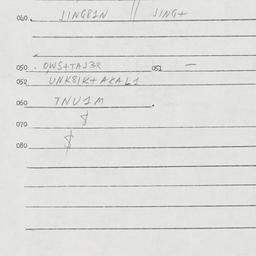 040. JINGP1N // JING+
050. OWS+TAJ3R 051 —
052 UNK8IK+AKAL1
060 TNU1M .
070 $
080 $